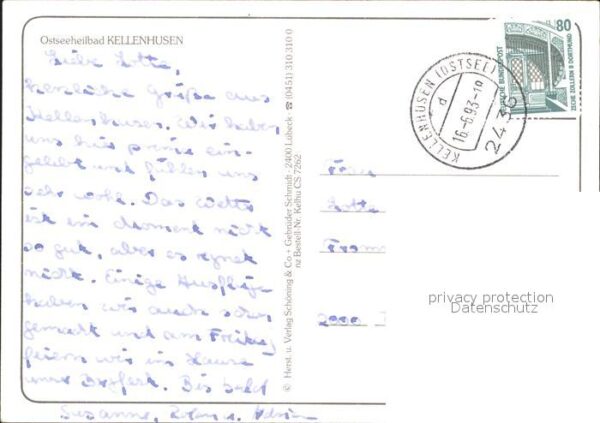 Ostseeheilbad KELLENHUSEN
Liebe Lotte,
herzliche Grüße aus
Kellenhusen. Wir haben
uns hier prima ein-
gelebt und fühlen uns
sehr wohl. Das Wetter
ist im Moment nicht
so gut, aber es regnet
nicht. Einige Ausflüge
haben wir auch schon
gemacht und am Freitag
feiern wir im Hause
unser Bis bald
Susanne, u. Adrian
© Herst. u. Verlag Schöning & Co + Gebrüder Schmidt · 2400 Lübeck · ☎ (0451) 310 310 0
nz Bestell-Nr. Kelhu CS 7262
KELLENHUSEN (OSTSEE)
d
16.-6.93-18
2436
80
DEUTSCHE BUNDESPOST
ZECHE ZOLLERN II DORTMUND
Frau
Lotte
privacy protection
Datenschutz